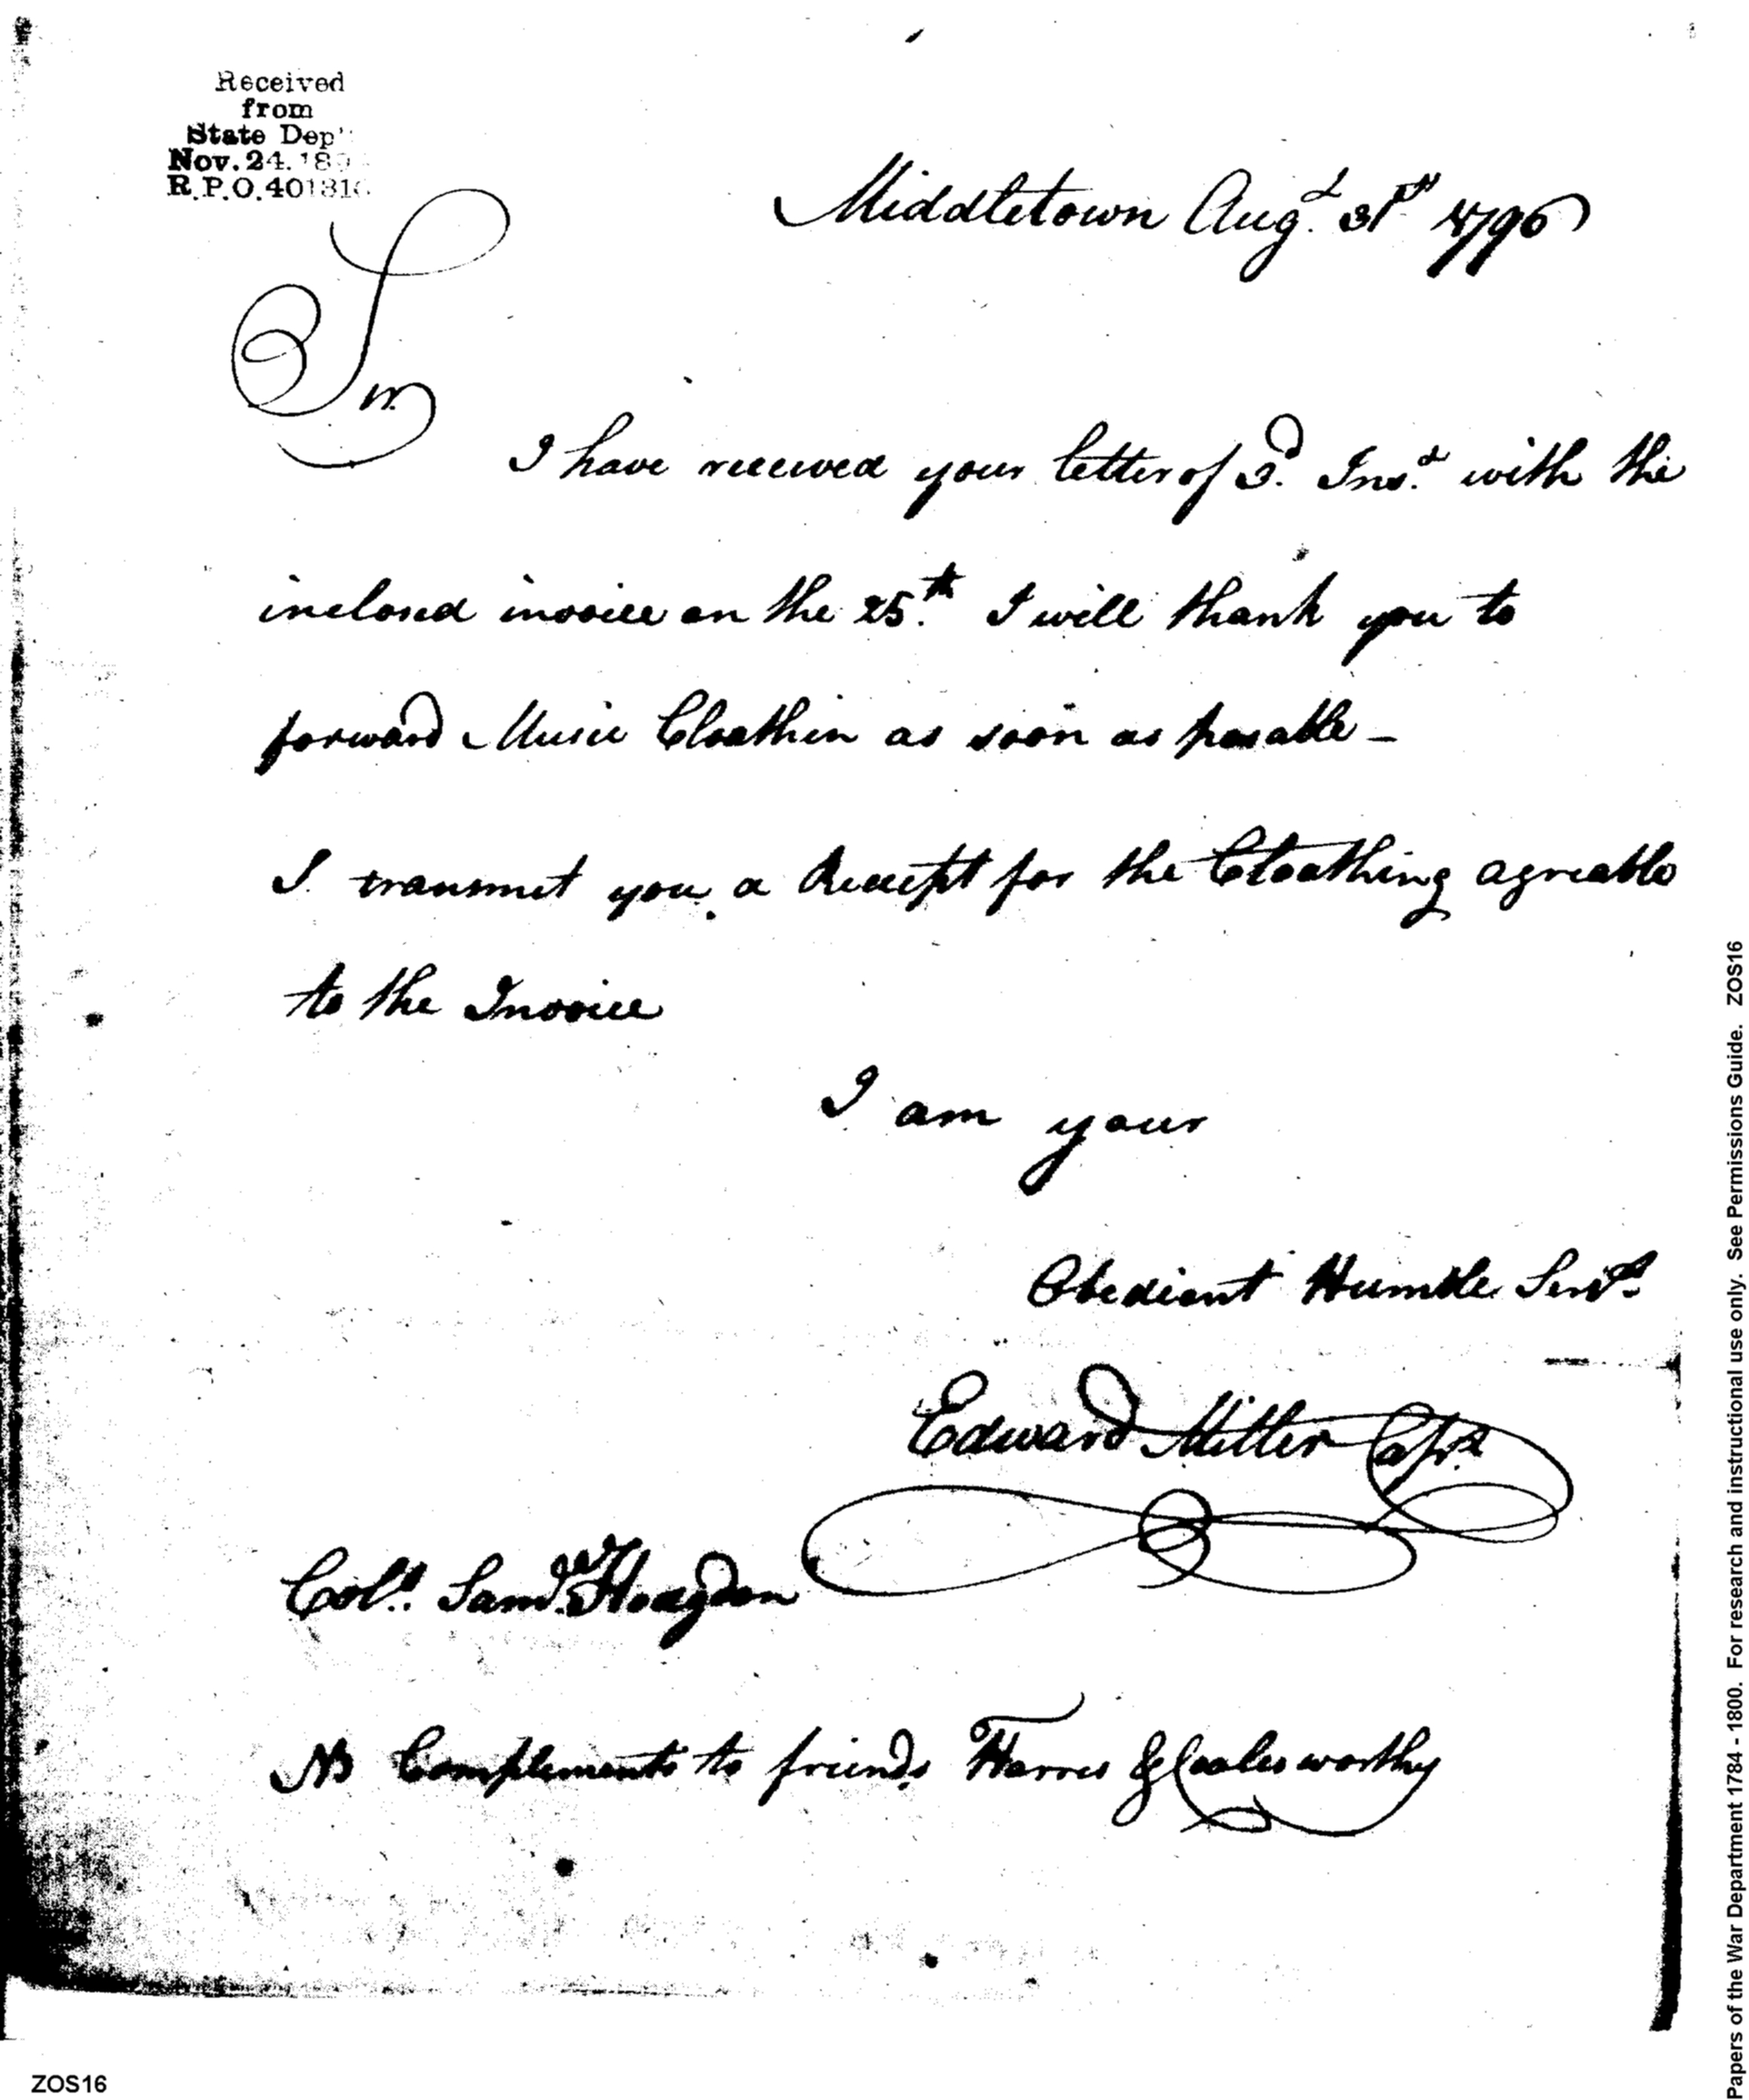 Received
from
State Dep't
Nov. 24. 189
R.P.O. 401316
Middletown Augt. 31st 1796
Sir.
I have received your letter of 3d. Inst. with the
inclosed invoice on the 25.th I will thank you to
forward Music Cloathin as soon as posable -
I transmet you a Receipt for the Cloathing agreable
to the Invoice
I am your
Obedient Humble Servt.
Edward Miller Capt.
Col.l Saml. Hodgdon
NB Complements to friends Harris & Coalesworthy
ZOS16
Papers of the War Department 1784 - 1800. For research and instructional use only. See Permissions Guide. ZOS16